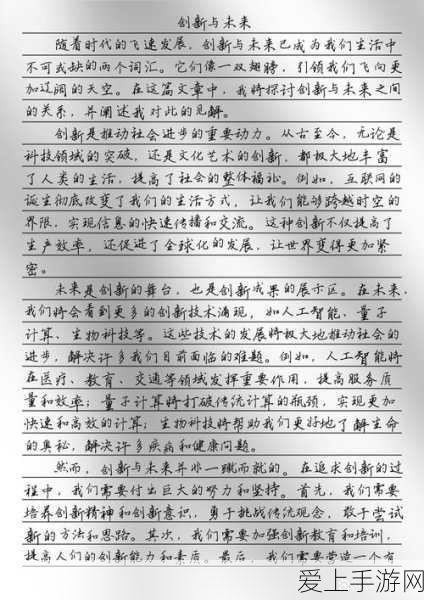 创新与未来
随着时代的飞速发展，创新与未来已成为我们生活中
不可或缺的两个词汇。它们像一双翅膀，引领我们飞向更
加辽阔的天空。在这篇文章中，我将探讨创新与未来之间
的关系，并阐述我对此的见解。
创新是推动社会进步的重要动力。从古至今，无论是
科技领域的突破，还是文化艺术的创新，都极大地丰富
了人类的生活，提高了社会的整体福祉。例如，互联网的
诞生彻底改变了我们的生活方式，让我们能够跨越时空的
界限，实现信息的快速传播和交流。这种创新不仅提高了
生产效率，还促进了全球化的发展，让世界变得更加紧
密。
未来是创新的舞台，也是创新成果的展示区。在未来，
我们将会看到更多的创新技术涌现，如人工智能、量子
计算、生物科技等。这些技术的发展将极大地推动社会的
进步，解决许多我们目前面临的难题。例如，人工智能将
在医疗、教育、交通等领域发挥重要作用，提高服务质
量和效率；量子计算将打破传统计算的瓶颈，实现更加
快速和高效的计算；生物科技将帮助我们更好地了解生命
的奥秘，解决许多疾病和健康问题。
然而，创新与未来并非一蹴而就的。在追求创新的过
程中，我们需要付出巨大的努力和坚持。首先，我们需要
培养创新精神和创新意识，勇于挑战传统观念，敢于尝试
新的方法和思路。其次，我们需要加强创新教育和培训，
提高人们的创新能力和素质。最后，我们需要营造一个有
爱上手游网